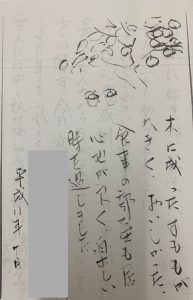 木に成ったすももが
大きく、おいしかった。
食事の部屋も広
心地が良く、楽しい
時を過しました
平成八年 八月